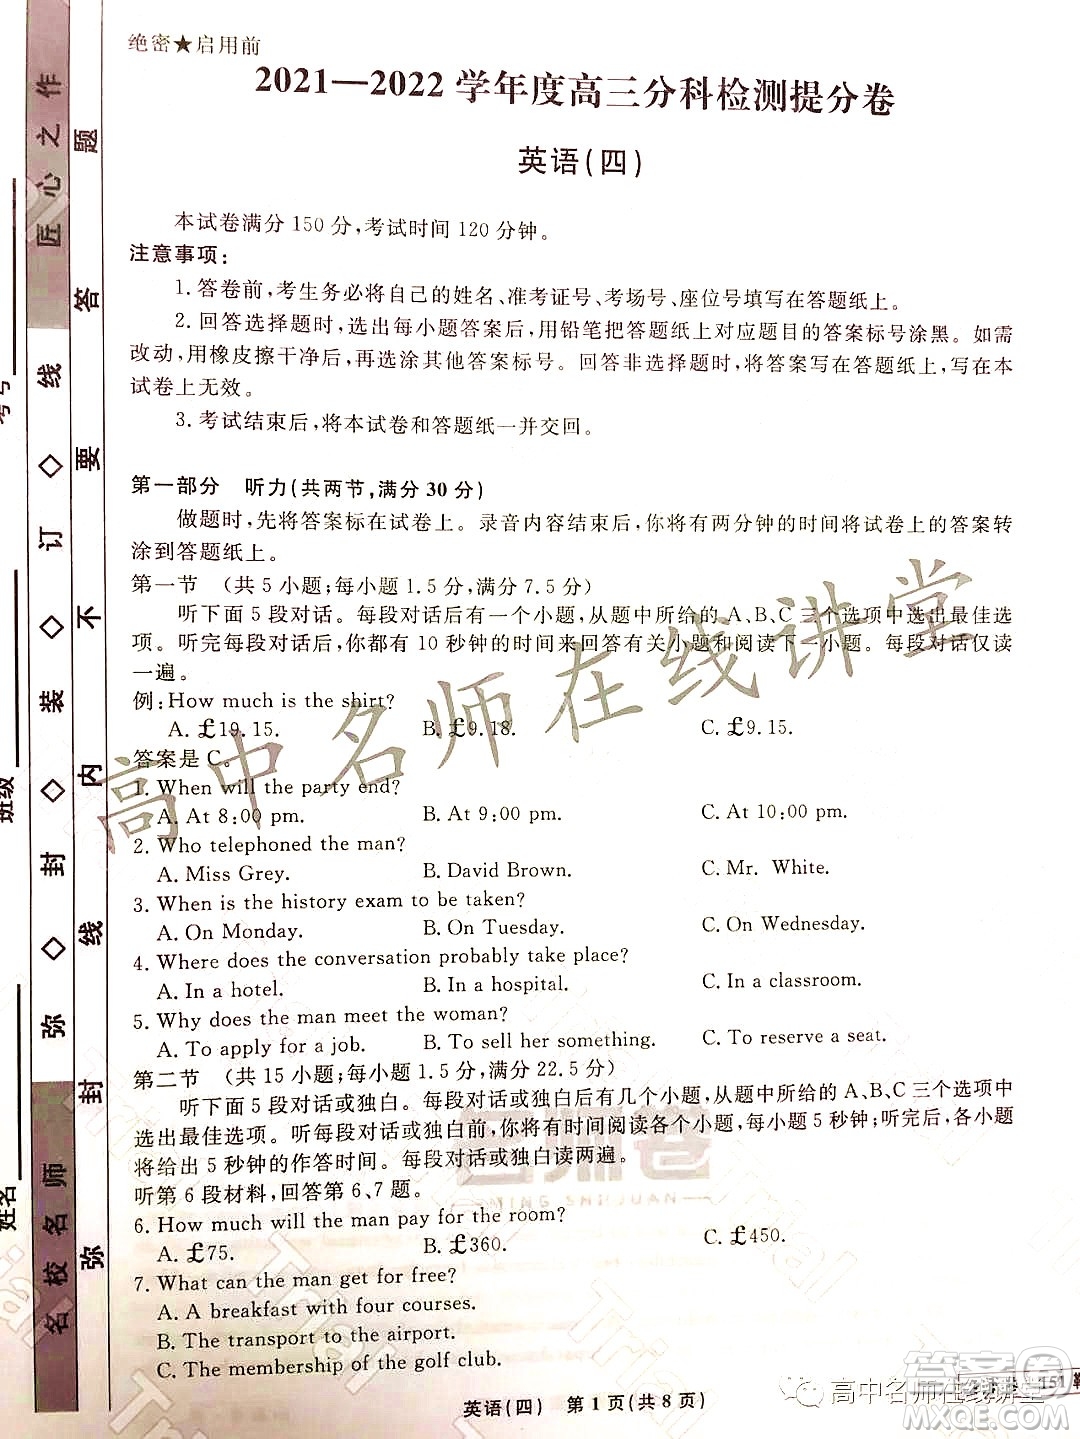 绝密★启用前
2021—2022 学年度高三分科检测提分卷
英语(四)
本试卷满分 150 分,考试时间 120 分钟。
注意事项:
1. 答卷前,考生务必将自己的姓名、准考证号、考场号、座位号填写在答题纸上。
2. 回答选择题时,选出每小题答案后,用铅笔把答题纸上对应题目的答案标号涂黑。如需
改动,用橡皮擦干净后,再选涂其他答案标号。回答非选择题时,将答案写在答题纸上。写在本
试卷上无效。
3. 考试结束后,将本试卷和答题纸一并交回。
第一部分 听力(共两节,满分 30 分)
做题时,先将答案标在试卷上。录音内容结束后,你将有两分钟的时间将试卷上的答案转
涂到答题纸上。
第一节 (共 5 小题;每小题 1.5 分,满分 7.5 分)
听下面 5 段对话。每段对话后有一个小题,从题中所给的 A、B、C 三个选项中选出最佳选
项。听完每段对话后,你都有 10 秒钟的时间来回答有关小题和阅读下一小题。每段对话仅读
一遍。
例:How much is the shirt?
A. £19.15. B. £9.18. C. £9.15.
答案是 C。
1. When will the party end?
A. At 8:00 pm. B. At 9:00 pm. C. At 10:00 pm.
2. Who telephoned the man?
A. Miss Grey. B. David Brown. C. Mr. White.
3. When is the history exam to be taken?
A. On Monday. B. On Tuesday. C. On Wednesday.
4. Where does the conversation probably take place?
A. In a hotel. B. In a hospital. C. In a classroom.
5. Why does the man meet the woman?
A. To apply for a job. B. To sell her something. C. To reserve a seat.
第二节 (共 15 小题;每小题 1.5 分,满分 22.5 分)
听下面 5 段对话或独白。每段对话或独白后有几个小题,从题中所给的 A、B、C 三个选项中
选出最佳选项。听每段对话或独白前,你将有时间阅读各个小题,每小题 5 秒钟;听完后,各小题
将给出 5 秒钟的作答时间。每段对话或独白读两遍。
听第 6 段材料,回答第 6、7 题。
6. How much will the man pay for the room?
A. £75. B. £360. C. £450.
7. What can the man get for free?
A. A breakfast with four courses.
B. The transport to the airport.
C. The membership of the golf club.
英语(四) 第 1 页(共 8 页)
匠心之作
名校名师
弥◇封◇装◇订◇线
弥封线内不要答题
考号
班级
姓名
高中名师在线讲堂
名师卷
MING SHI JUAN
高中名师在线讲堂
答案圈
MXQE.COM